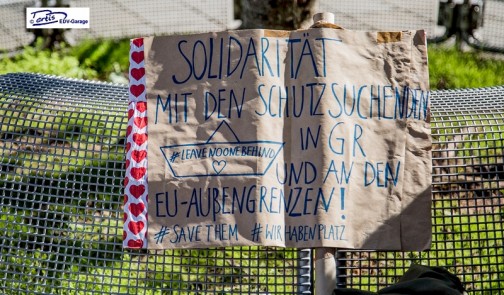 Tortis
EDV-Garage
SOLIDARITÄT
MIT DEN SCHUTZSUCHENDEN
#LEAVENOONEBEHIND
IN GR
UND AN DEN
EU-AUßENGRENZEN!
#SAVE THEM #WIRHABENPLATZ